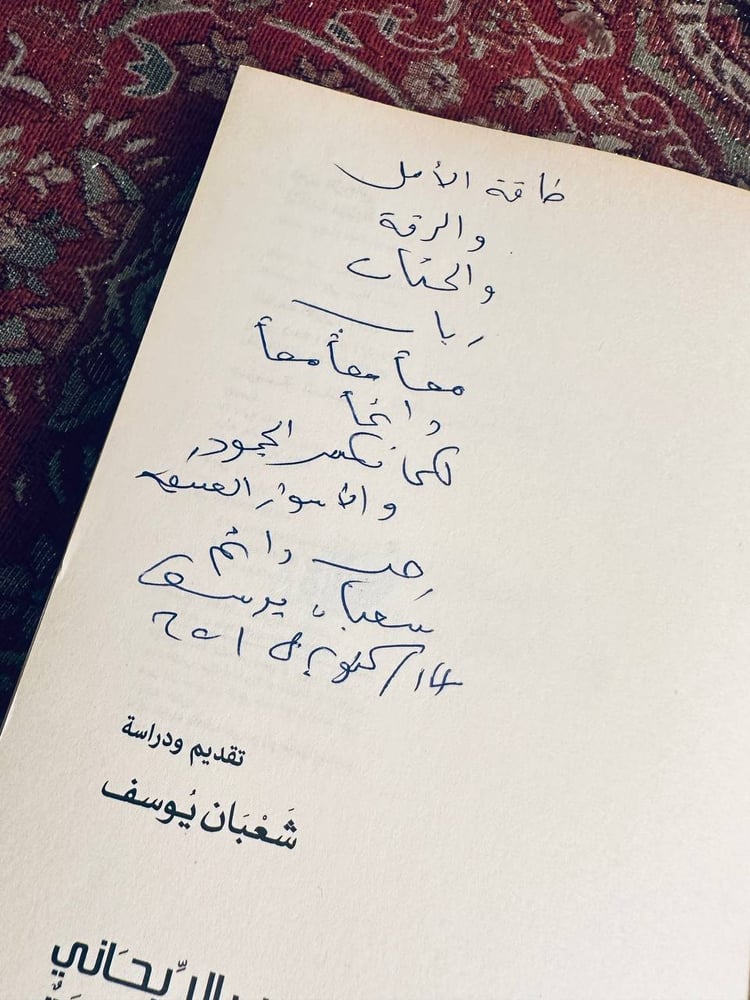 طاقة الأمل
والرقة
والحنان
رباب
معاً معاً معاً
دائماً
لكى نكسر الجمود
والأسوار العتيقة
حب دائم
شعبان يوسف
14/أكتوبر 2018
تقديم ودراسة
شَعْبَان يُوسف
الرِّيحَاني